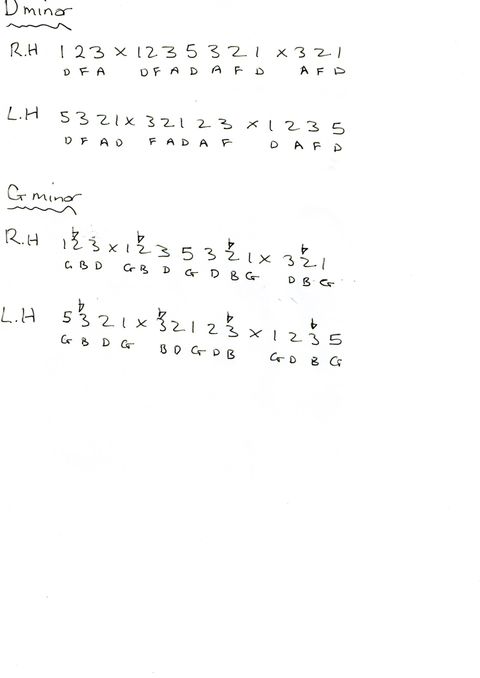 D minor
R.H 1 2 3 x 1 2 3 5 3 2 1 x 3 2 1
D F A D F A D A F D A F D
L.H 5 3 2 1 x 3 2 1 2 3 x 1 2 3 5
D F A D F A D A F D A F D
G minor
R.H 1 ♭2 3 x 1 ♭2 3 5 3 ♭2 1 x 3 ♭2 1
G B D G B D G D B G D B G
L.H 5 ♭3 2 1 x ♭3 2 1 2 ♭3 x 1 2 ♭3 5
G B D G B D G D B G D B G